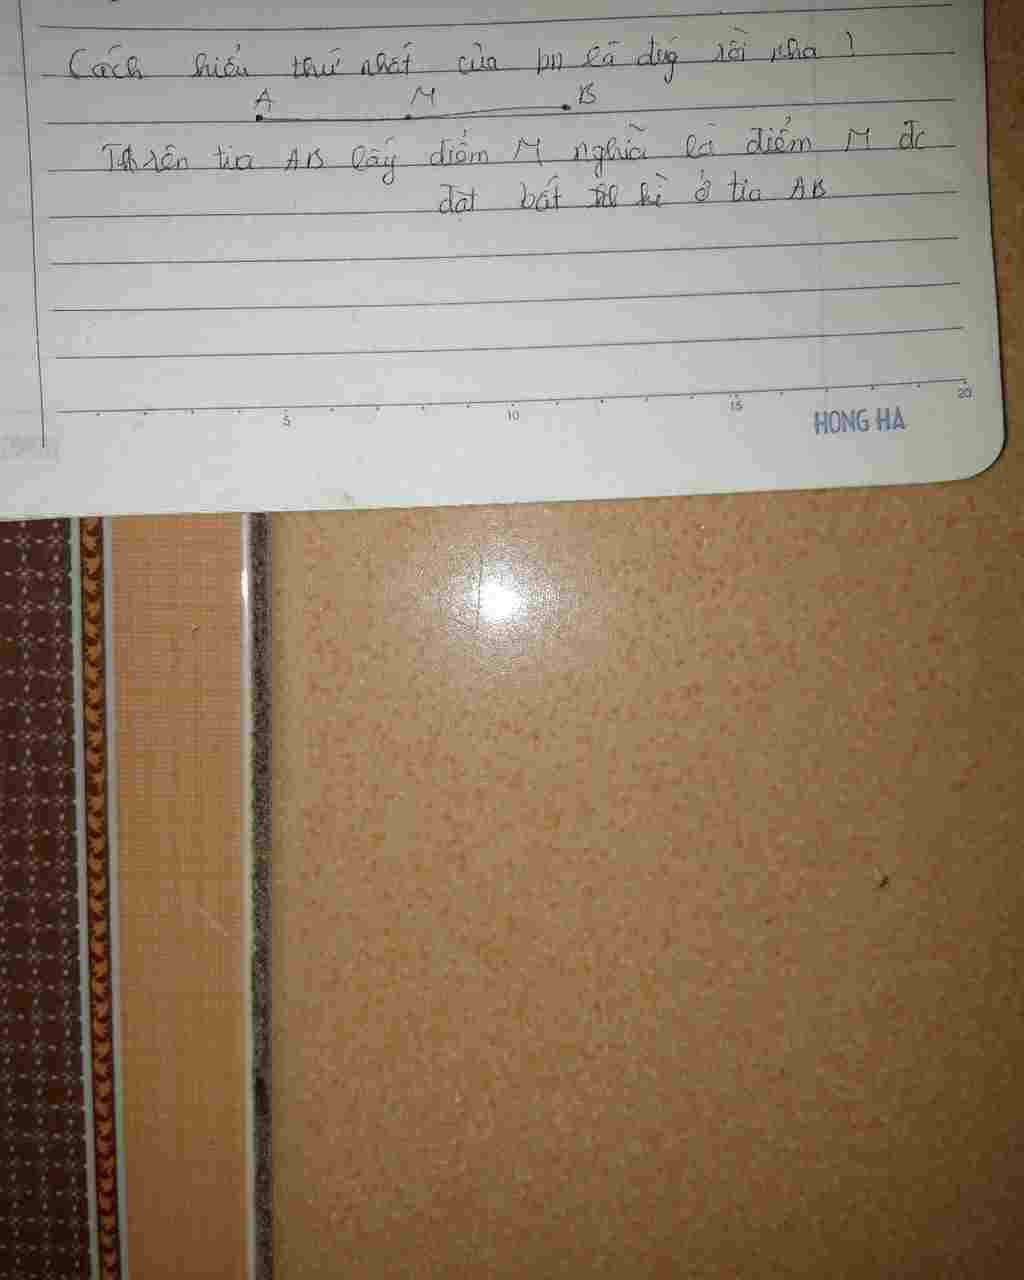 Cách hiểu thứ nhất của bn là đúg rồi nha !
A M B
Trên tia AB lấy điểm M nghĩa là điểm M đc
đặt bất kì ở tia AB
5 10 15 20
HONG HA